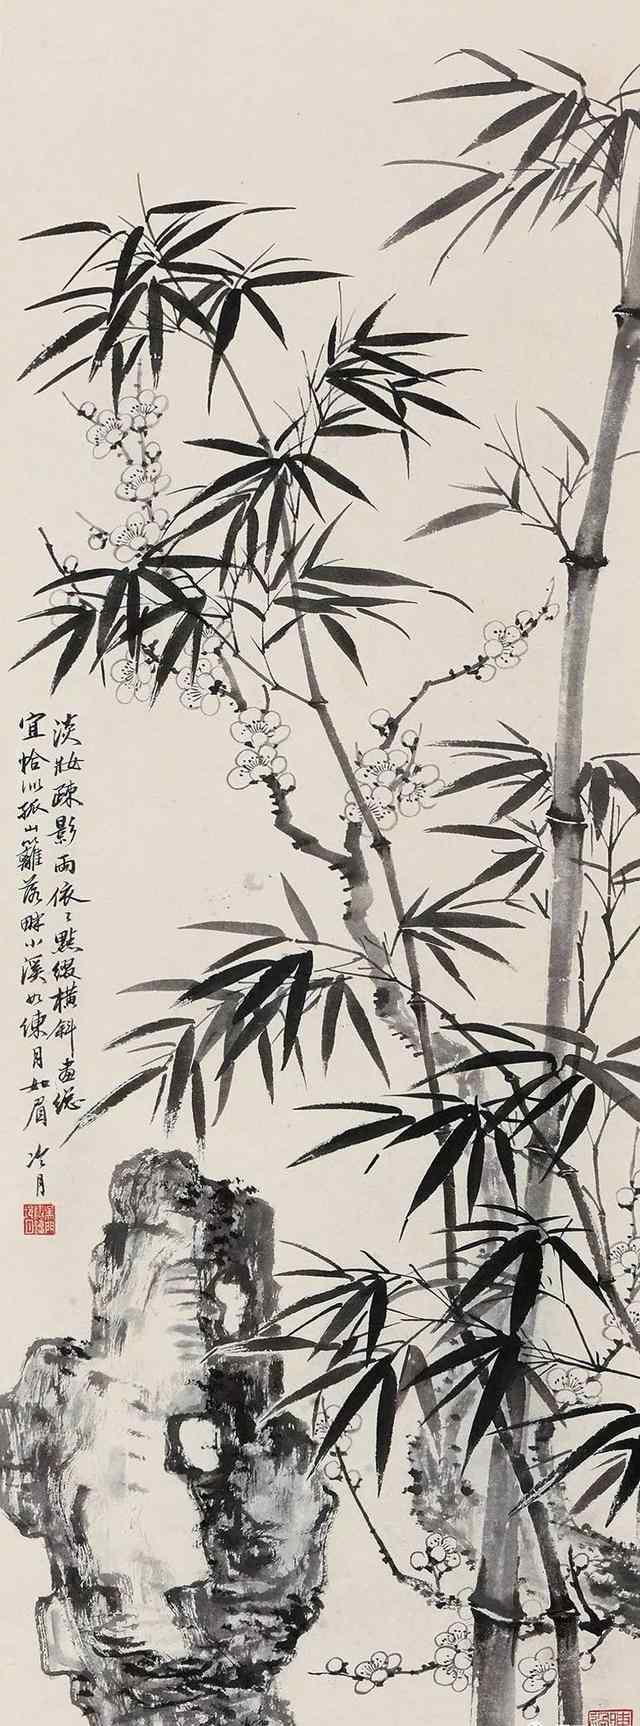 淡妝疎影兩依〻點綴橫斜畫總
宜恰似孤山籬落畔小溪如練月如眉 冷月